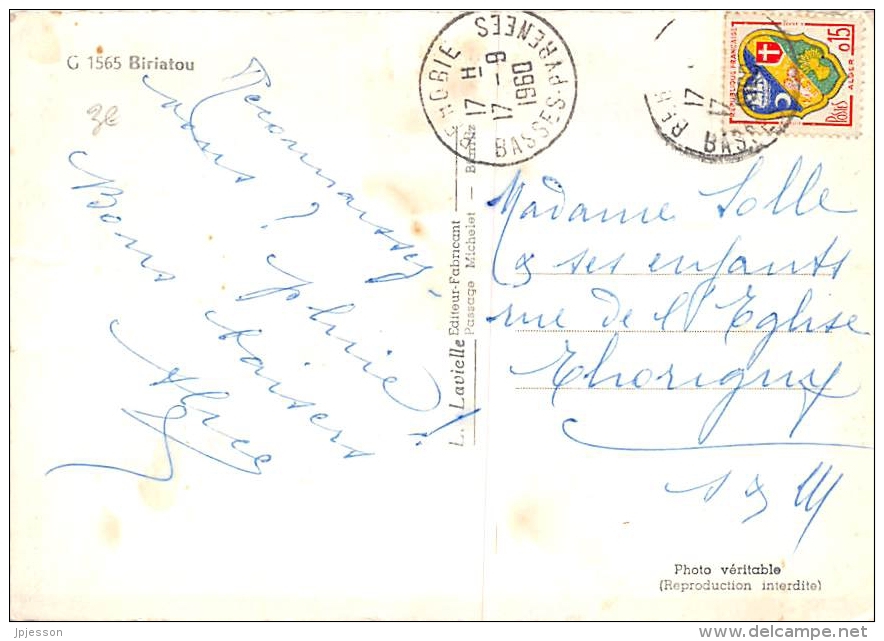 G 1565 Biriatou
3€
Reconnaissez
vous ? pluie !
Bons baisers
Alice
L. Lavielle Editeur-Fabricant
Passage Michelet — Biarritz
BEHOBIE
17 H
17 - 9
1960
BASSES-PYRENEES
BEH
17
17
BASSE
REPUBLIQUE FRANÇAISE
0,15
ALGER
Postes
Madame Solle
& ses enfants
rue de l'Eglise
Thorigny
S & M
Photo véritable
(Reproduction interdite)
jpjesson
www.delcampe.net